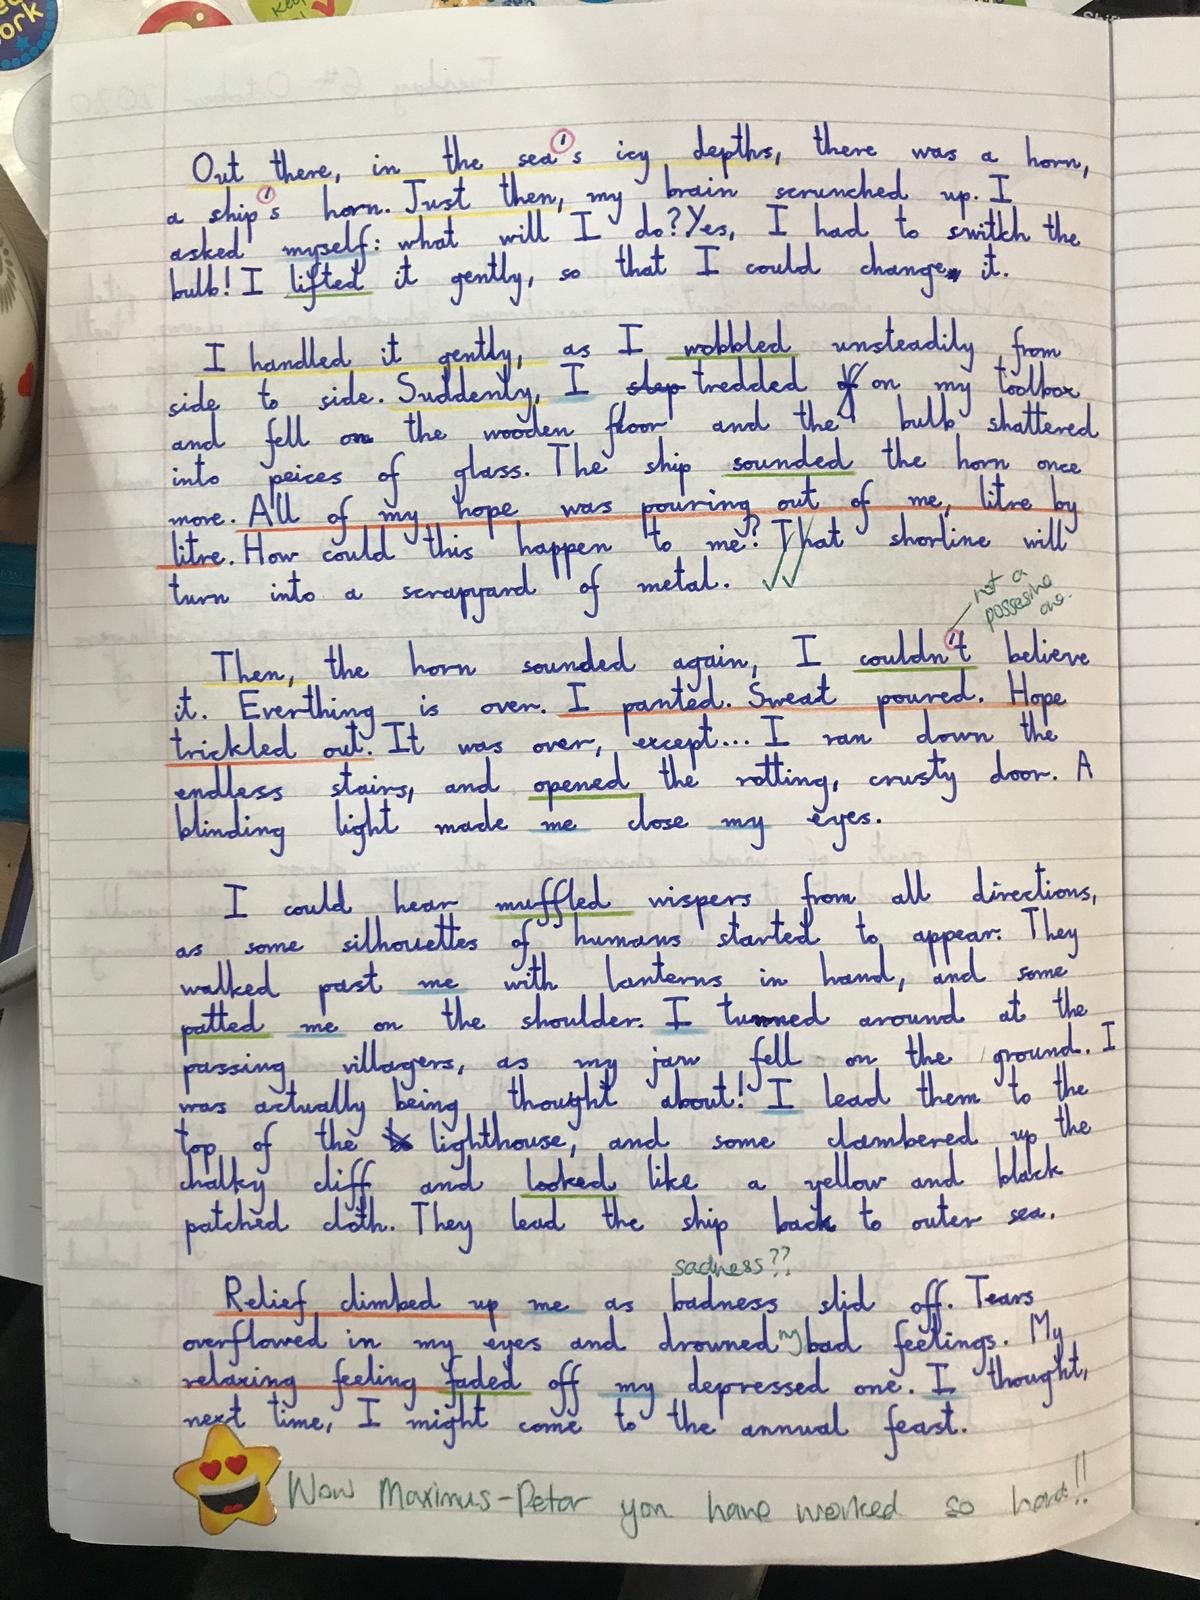 Out there, in the sea's icy depths, there was a horn,
a ship's horn. Just then, my brain scrunched up. I
asked myself: what will I do? Yes, I had to switch the
bulb! I lifted it gently, so that I could change it.
I handled it gently, as I wobbled unsteadily from
side to side. Suddenly, I step tredded of on my toolbox
and fell on the wooden floor and the bulb shattered
into peices of glass. The ship sounded the horn once
more. All of my hope was pouring out of me, litre by
litre. How could this happen to me? That shorline will
turn into a scrapyard of metal.
not a
possesive
one.
Then, the horn sounded again, I couldn't believe
it. Everthing is over. I panted. Sweat poured. Hope
trickled out. It was over, except... I ran down the
endless stairs, and opened the rotting, crusty door. A
blinding light made me close my eyes.
I could hear muffled wispers from all directions,
as some silhouettes of humans started to appear. They
walked past me with lanterns in hand, and some
patted me on the shoulder. I turned around at the
passing villagers, as my jaw fell on the ground. I
was actually being thought about! I lead them to the
top of the lighthouse, and some clambered up the
chalky cliff and looked like a yellow and black
patched cloth. They lead the ship back to outer sea.
sadness??
Relief climbed up me as badness slid off. Tears
overflowed in my eyes and drowned my bad feelings. My
relaxing feeling faded off my depressed one. I thought,
next time, I might come to the annual feast.
Wow Maximus-Petar you have worked so hard!!